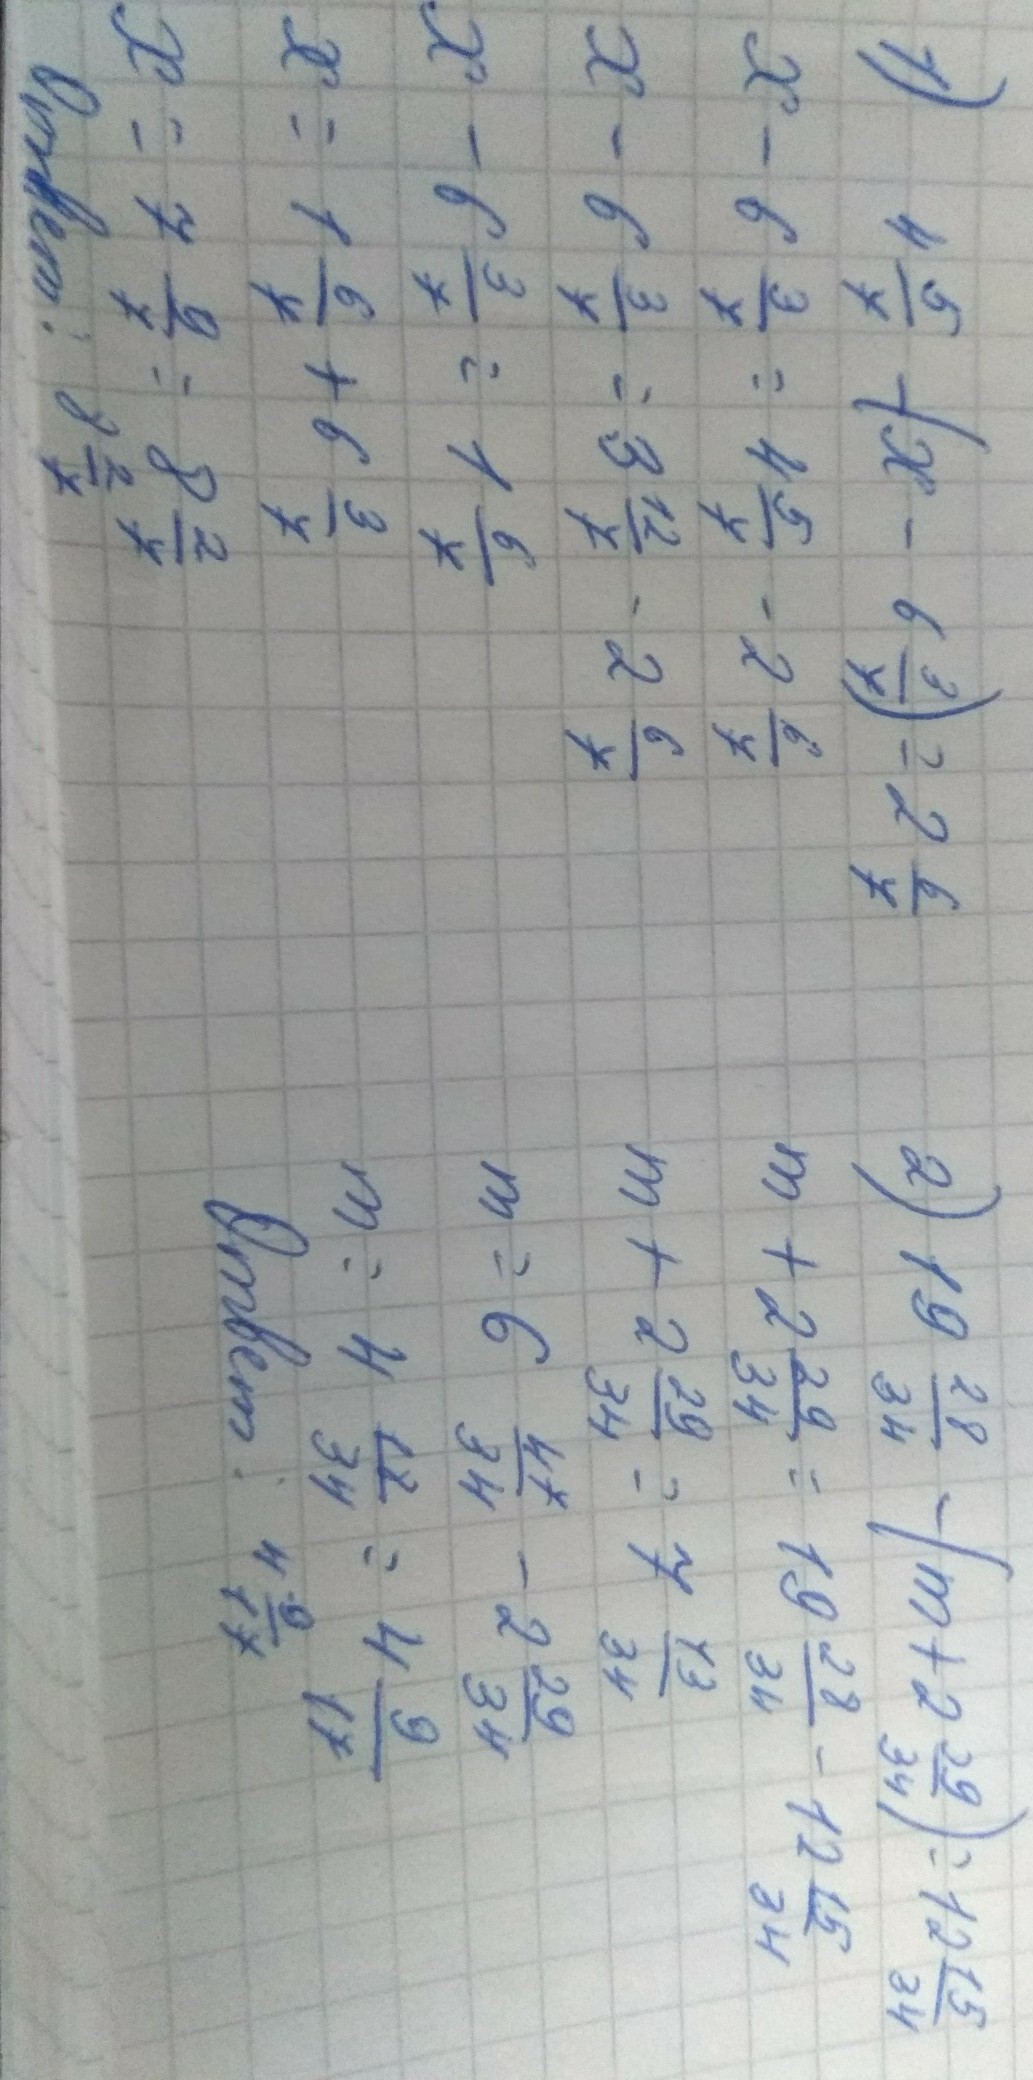 1) 4 5/7 - (x - 6 3/7) = 2 6/7
x - 6 3/7 = 4 5/7 - 2 6/7
x - 6 3/7 = 3 12/7 - 2 6/7
x - 6 3/7 = 1 6/7
x = 1 6/7 + 6 3/7
x = 7 9/7 = 8 2/7
Ответ: 8 2/7
2) 19 28/34 - (m + 2 29/34) = 12 15/34
m + 2 29/34 = 19 28/34 - 12 15/34
m + 2 29/34 = 7 13/34
m = 6 47/34 - 2 29/34
m = 4 18/34 = 4 9/17
Ответ: 4 9/17